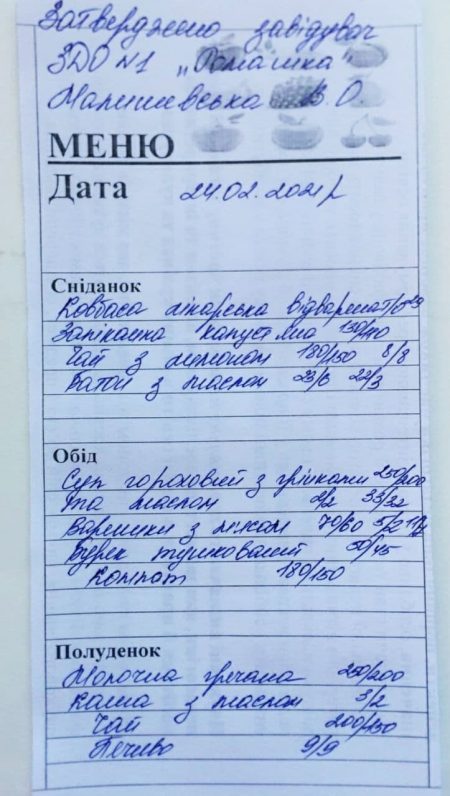 Затверджено завідувач
ЗДО №1 „Ромашка"
Малишевська В.О.
МЕНЮ
Дата 24.02.2021р
Сніданок
Ковбаса лікарська відварена
Запіканка капустяна 130/110
Чай з лимоном 180/150 8/8
Батон з маслом 23/6 22/3
Обід
Суп гороховий з грінками 250/200
та маслом 2/2 33/32
Вареники з м'ясом 70/60 5/2
Буряк тушкований 50/45
Компот 180/150
Полуденок
Молочна гречана 250/200
каша з маслом 3/2
Чай 200/150
Печиво 9/9